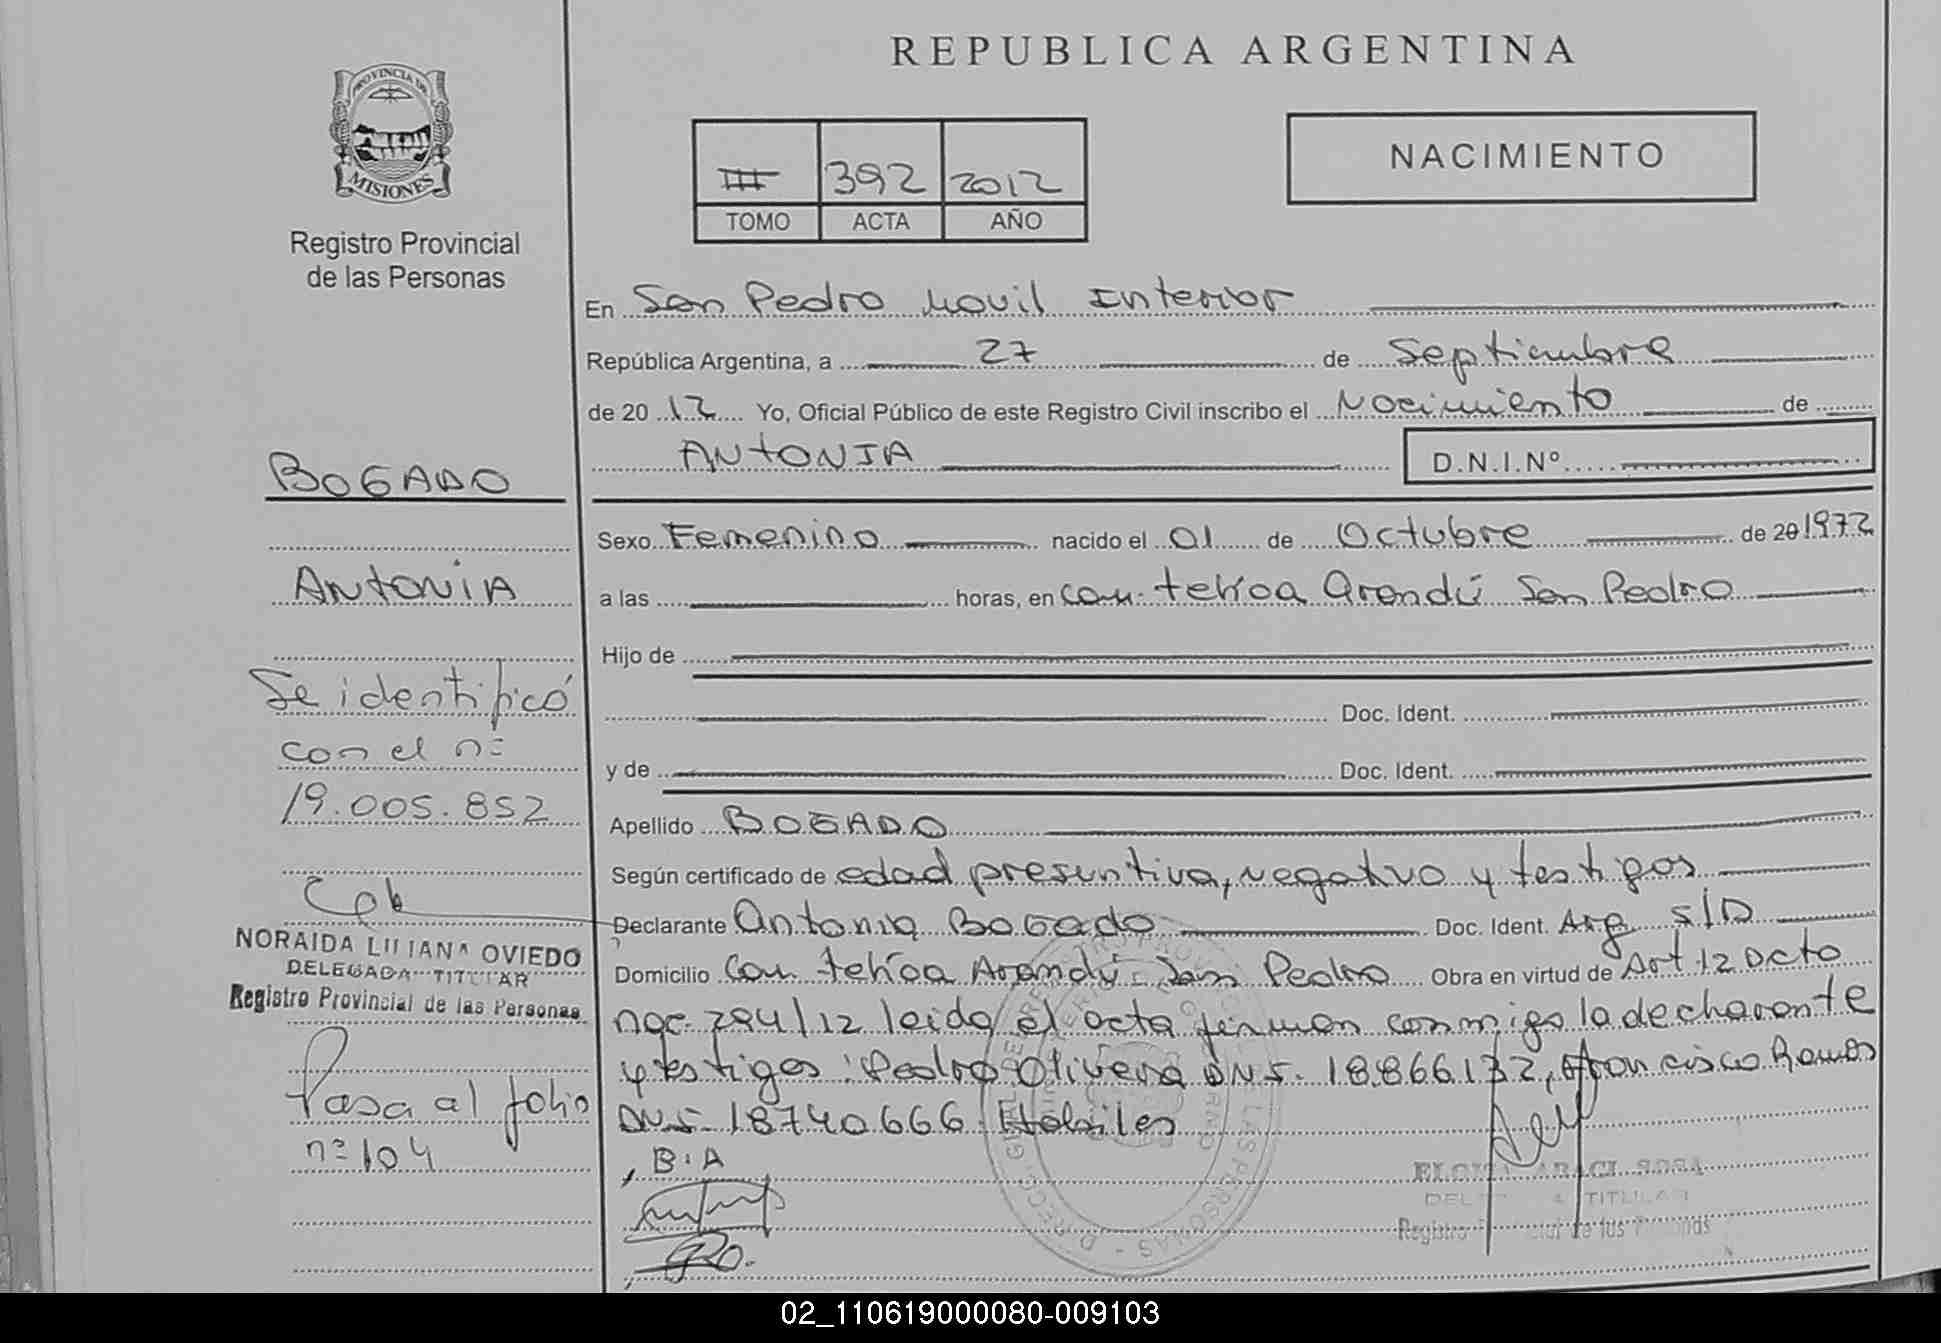 REPUBLICA ARGENTINA
PROVINCIA DE
MISIONES
Registro Provincial
de las Personas
III 392 2012
TOMO ACTA AÑO
NACIMIENTO
En San Pedro Movil Interior
República Argentina, a 27 de Septiembre
de 20 12 Yo, Oficial Público de este Registro Civil inscribo el Nacimiento de
ANTONIA D.N.I.Nº
BOGADO
ANTONIA
Se identificó
con el nº
19.005.852
NORAIDA LILIANA OVIEDO
DELEGADA TITULAR
Registro Provincial de las Personas
Pasa al folio
nº 104
Sexo Femenino nacido el 01 de Octubre de 20 1972
a las horas, en Com. tekoa Arandú San Pedro
Hijo de
Doc. Ident.
y de Doc. Ident.
Apellido BOGADO
Según certificado de edad presuntiva, negativo y testigos
Declarante Antonia Bogado Doc. Ident. Arg. S/D
Domicilio Com. tekoa Arandú San Pedro Obra en virtud de Art 12 Dcto
nac. 294/12 leida el acta firman conmigo la declarante
y testigos: Pedro Olivera DNI. 18866132, Francisco Ramos
DNI. 18740666 Habiles
B.A
TITULAR
Registro Provincial de las Personas
02_110619000080-009103